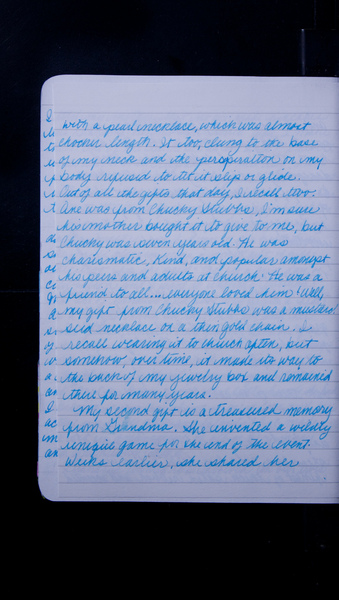 with a pearl necklace, which was almost
chocker length. It too, clung to the base
of my neck and the perspiration on my
body refused to let it slip or glide.
Out of all the gifts that day, I recall two:
One was from Chucky Stubbs, I'm sure
his mother bought it to give to me, but
Chucky was seven years old. He was
charismatic, kind, and popular amongst
his peers and adults at church. He was a
friend to all... everyone loved him! Well,
my gift from Chucky Stubbs was a mustard
seed necklace on a thin gold chain. I
recall wearing it to church often, but
somehow, over time, it made its way to
the back of my jewelry box and remained
there for many years.
My second gift is a treasured memory
from Grandma. She invented a wildly
unique game for the end of the event.
Weeks earlier, she shared her